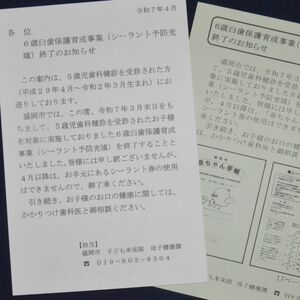 令和7年4月
各 位
6歳臼歯保護育成事業（シーラント予防充
填）終了のお知らせ
この案内は、5歳児歯科健診を受診された方
（平成29年4月～令和2年3月生まれ）にお
送りしております。
盛岡市では、この度、令和7年3月末日をも
ちまして、5歳児歯科健診を受診されたお子様
を対象に実施しておりました6歳臼歯保護育成
事業（シーラント予防充填）を終了することと
いたしました。皆様には申し訳ございませんが、
4月以降は、お手元にあるシーラント券の使用
はできませんので、御了承ください。
引き続き、お子様のお口の健康に関しては、
かかりつけ歯科医と御相談ください。
【担当】
盛岡市 子ども未来部 母子健康課
☎ 019-603-8304
6歳臼歯保護育成事業（
終了のお知らせ
盛岡市では、令和7年3
4月以降は
はできません
引き続き、お子様のお口の
かかりつけ歯科医と御相談
赤ちゃん手帳
17ペー